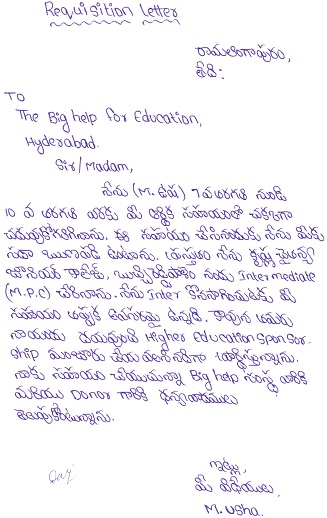 Requisition Letter
రామలింగాపురం,
తేది:
To
The Big help for Education,
Hyderabad.
Sir/Madam,
నేను (M. ఉష) 7 వ తరగతి నుండి
10 వ తరగతి వరకు మీ ఆర్థిక సహాయంతో చక్కగా
చదువుకోగలిగినాను. ఈ సహాయం చేసినందుకు నేను మీకు
సదా ఋణపడి ఉంటాను. ప్రస్తుతం నేను కృష్ణ చైతన్య
జూనియర్ కాలేజి, నందు Intermediate
(M.P.C) చేరినాను. నేను Inter కొనసాగించుటకు మీ
సహాయం ఎప్పుడు అవసరమై ఉన్నది. కావున తమరు
నాయందు దయవుంచి Higher Education Sponsor-
ship మంజూరు చేయవలసినదిగా ప్రార్థిస్తున్నాను.
నాకు సహాయం చేయుచున్నా Big help సంస్థ వారికి
మరియు Donor గారికి ధన్యవాదములు
తెలుపుకొంటున్నాను.
ఇట్లు,
మీ విధేయులు,
M. Usha.